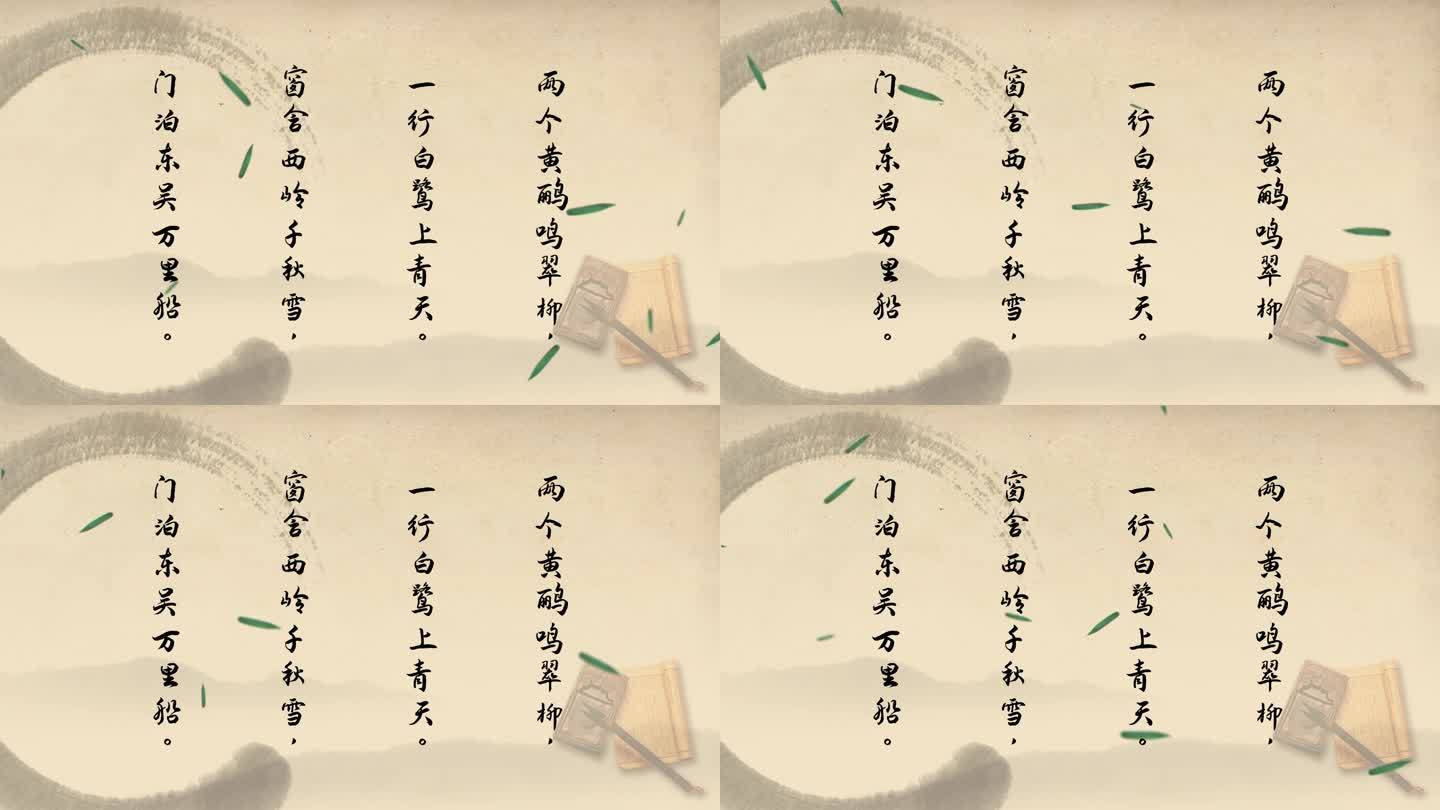 两个黄鹂鸣翠柳，
一行白鹭上青天。
窗含西岭千秋雪，
门泊东吴万里船。
两个黄鹂鸣翠柳，
一行白鹭上青天。
窗含西岭千秋雪，
门泊东吴万里船。
两个黄鹂鸣翠柳，
一行白鹭上青天。
窗含西岭千秋雪，
门泊东吴万里船。
两个黄鹂鸣翠柳，
一行白鹭上青天。
窗含西岭千秋雪，
门泊东吴万里船。